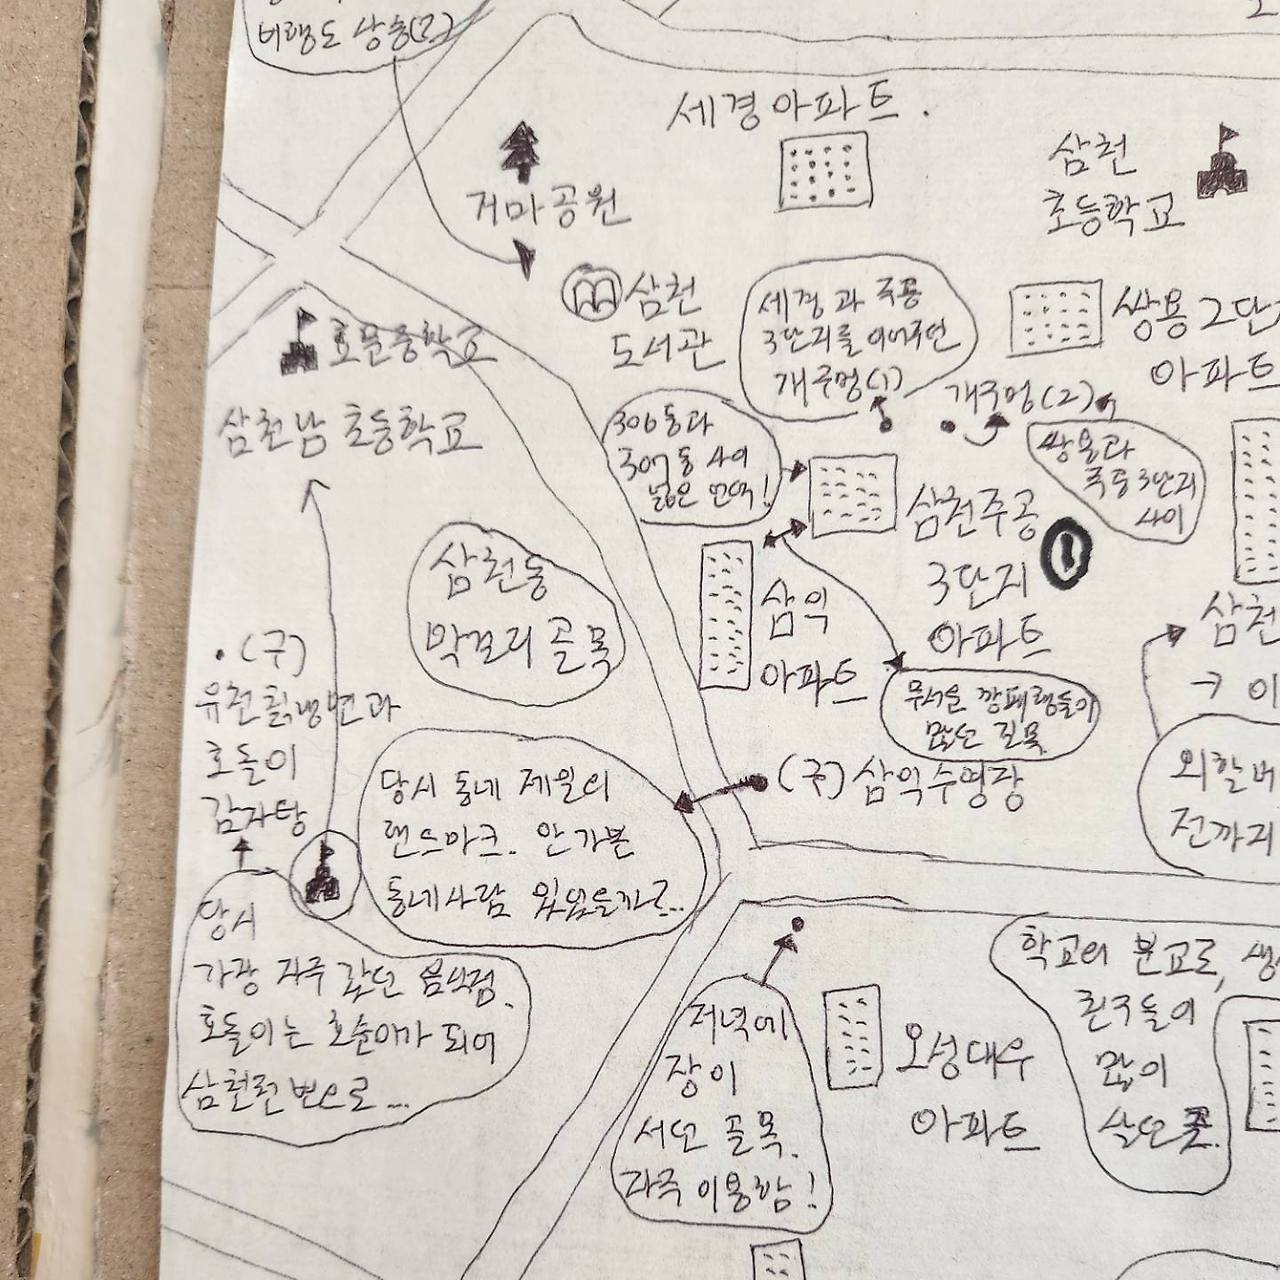 비행도 상승(?)
세경아파트.
거마공원
삼천
초등학교
삼천
도서관
세경과 주공
3단지를 이어주던
개구멍(1)
쌍용 2단
아파트
효문중학교
개구멍(2)
306동과
307동 사이
넓은 언덕!
쌍용과
주공 3단지
사이
삼천남 초등학교
삼천주공
3단지
아파트
1
삼천동
막걸리 골목
삼익
아파트
삼천
→ 이
무서운 깡패형들이
많던 길목
• (구)
유천칡냉면과
호돌이
감자탕
(구) 삼익수영장
당시 동네 제일의
랜드마크. 안 가본
동네사람 있었을까...
외할머
전까지
당시
가장 자주 갔던 음식점.
호돌이는 호순이가 되어
삼천천변으로...
저녁에
장이
서던 골목.
자주 이용함!
오성대우
아파트
학교의 분교로, 생
친구들이
많이
살던 곳.